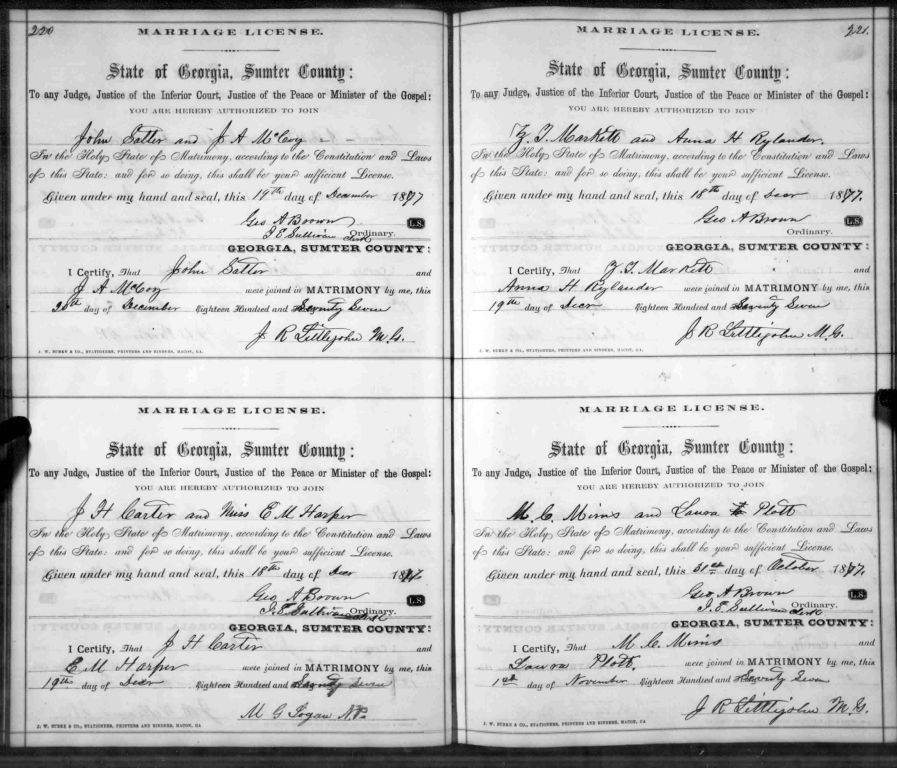 220
MARRIAGE LICENSE.
State of Georgia, Sumter County:
To any Judge, Justice of the Inferior Court, Justice of the Peace or Minister of the Gospel:
YOU ARE HEREBY AUTHORIZED TO JOIN
John Salter and J A McCoy
In the Holy State of Matrimony, according to the Constitution and Laws
of this State: and for so doing, this shall be your sufficient License.
Given under my hand and seal, this 19th day of December 1877
Geo A Brown L.S.
J. E. Sullivan Clerk Ordinary.
GEORGIA, SUMTER COUNTY:
I Certify, That John Salter and
J A McCoy were joined in MATRIMONY by me, this
20th day of December Eighteen Hundred and Seventy Seven
J R Littlejohn M.G.
J. W. BURKE & CO., STATIONERS, PRINTERS AND BINDERS, MACON, GA.
MARRIAGE LICENSE.
State of Georgia, Sumter County:
To any Judge, Justice of the Inferior Court, Justice of the Peace or Minister of the Gospel:
YOU ARE HEREBY AUTHORIZED TO JOIN
J H Carter and Miss E M Harper
In the Holy State of Matrimony, according to the Constitution and Laws
of this State: and for so doing, this shall be your sufficient License.
Given under my hand and seal, this 18th day of Decr 1877.
Geo A Brown L.S.
J. E. Sullivan Clerk Ordinary.
GEORGIA, SUMTER COUNTY:
I Certify, That J H Carter and
E M Harper were joined in MATRIMONY by me, this
19th day of Decr Eighteen Hundred and Seventy Seven
M G Fogan N.P.
J. W. BURKE & CO., STATIONERS, PRINTERS AND BINDERS, MACON, GA.
221.
MARRIAGE LICENSE.
State of Georgia, Sumter County:
To any Judge, Justice of the Inferior Court, Justice of the Peace or Minister of the Gospel:
YOU ARE HEREBY AUTHORIZED TO JOIN
Z. T. Markett and Anna H Rylander.
In the Holy State of Matrimony, according to the Constitution and Laws
of this State: and for so doing, this shall be your sufficient License.
Given under my hand and seal, this 18th day of Decr 1877.
Geo A Brown L.S.
Ordinary.
GEORGIA, SUMTER COUNTY:
I Certify, That Z. T. Markett and
Anna H Rylander were joined in MATRIMONY by me, this
19th day of Decr Eighteen Hundred and Seventy Seven
J R Littlejohn M.G.
J. W. BURKE & CO., STATIONERS, PRINTERS AND BINDERS, MACON, GA.
MARRIAGE LICENSE.
State of Georgia, Sumter County:
To any Judge, Justice of the Inferior Court, Justice of the Peace or Minister of the Gospel:
YOU ARE HEREBY AUTHORIZED TO JOIN
M. C. Mims and Laura Plott
In the Holy State of Matrimony, according to the Constitution and Laws
of this State: and for so doing, this shall be your sufficient License.
Given under my hand and seal, this 31st day of October 1877.
Geo A Brown L.S.
J. E. Sullivan Clerk Ordinary.
GEORGIA, SUMTER COUNTY:
I Certify, That M. C. Mims and
Laura Plott. were joined in MATRIMONY by me, this
1st day of November Eighteen Hundred and Seventy Seven
J R Littlejohn M.G.
J. W. BURKE & CO., STATIONERS, PRINTERS AND BINDERS, MACON, GA